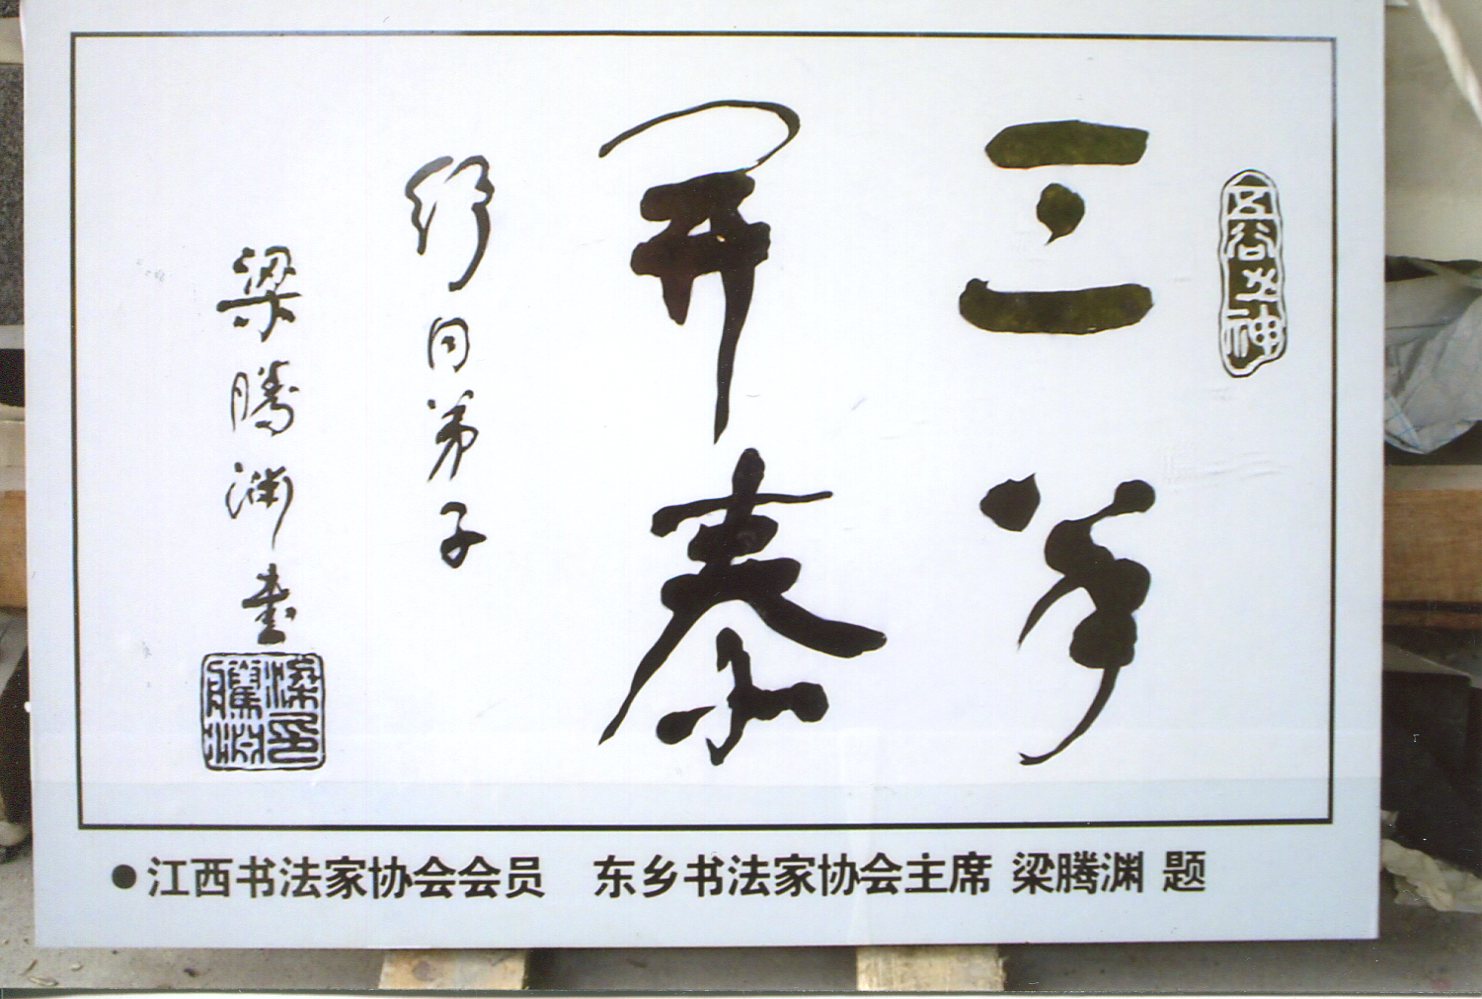 五谷之神
三羊
開泰
弟子
梁腾渊書
梁腾渊印
●江西书法家协会会员 东乡书法家协会主席 梁腾渊 题